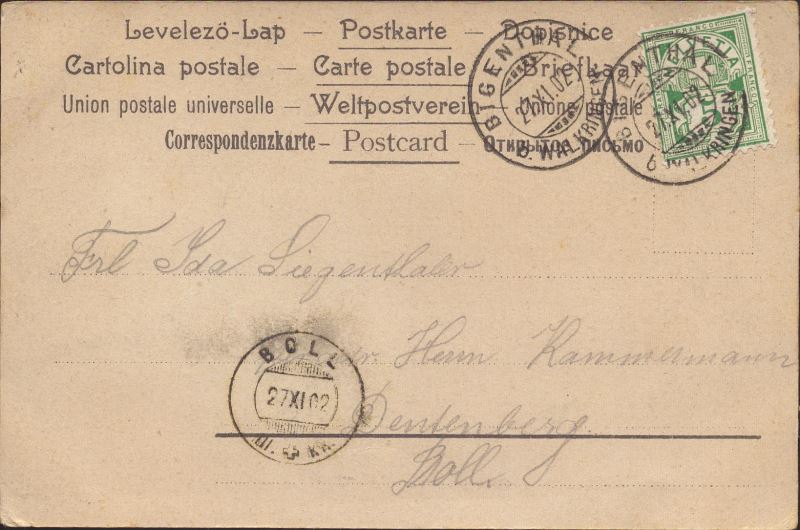 Levelező-Lap — Postkarte — Dopisnice
Cartolina postale — Carte postale — Briefkaart
Union postale universelle — Weltpostverein — Unione postale
Correspondenzkarte — Postcard — Открытое письмо
BIGENTHAL
27.XI.02
b. WALKRINGEN
BIGENTHAL
27.XI.02
b. WALKRINGEN
FRANCO
5
Frl Ida Siegenthaler
Herrn Kammermann
Dentenberg
Boll.
BOLL
27XI02